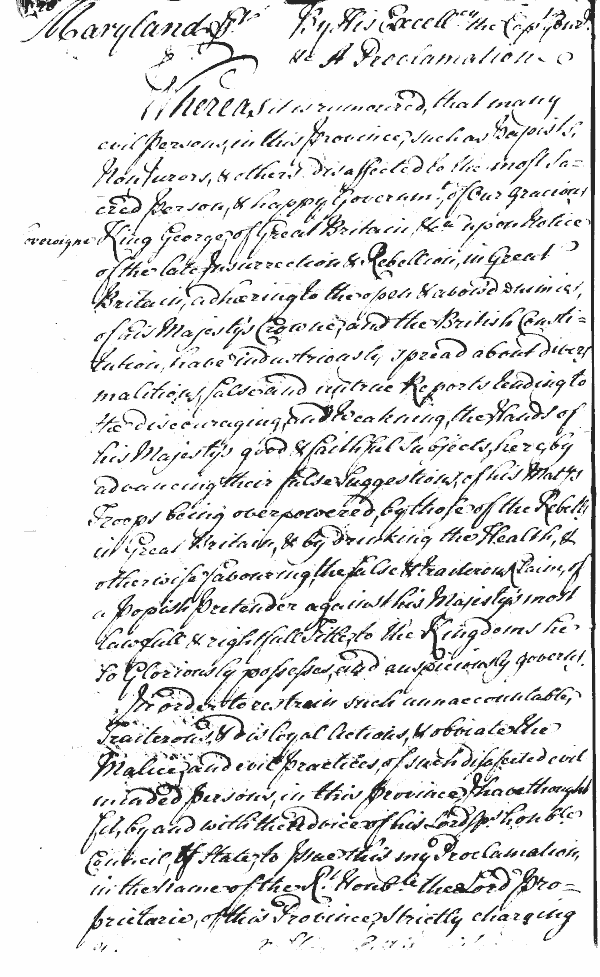 Maryland Ss.
By His Excellcy the Capt. Genl.
&c A Proclamation
Whereas it is rumoured, that many
evil persons, in this province, such as Papists,
Non Jurors, & others disaffected to the most Sa-
cred person, & happy Governmt, of Our gracious
Sovereigne King George, of Great Britain, &ca upon Notice
of the late Insurrection & Rebellion, in Great
Britain, adhering to the open & avowd enimies,
of his Majestys Crowne, and the British Consti-
tution, have industriously, spread about divers
malitious, false and untrue Reports tending to
the discouraging, and weakning, the Hands of
his Majestys good & faithful Subjects, here, by
advancing their false Suggestions, of his Matys
Troops being overpowered, by those of the Rebells
in Great Britain, & by drinking the Health, &
otherwise favouring, the false & traiterous Claim, of
a popish Pretender against his Majestys most
lawfull & rightfull Title, to the Kingdoms he
so Gloriously possesses, and auspiciously governs.
In order to restrain such unaccountable,
Traiterous, & disloyal Actions, & obviate the
Malice, and evil practices, of such disaffected evil
minded persons, in this province, I have thought
fit, by and with the Advice of his Lordsps. honble
Council, of State, to Issue this my Proclamation,
in the name of the Rt. Honble the Lord Pro-
prietarie, of this Province, strictly charging